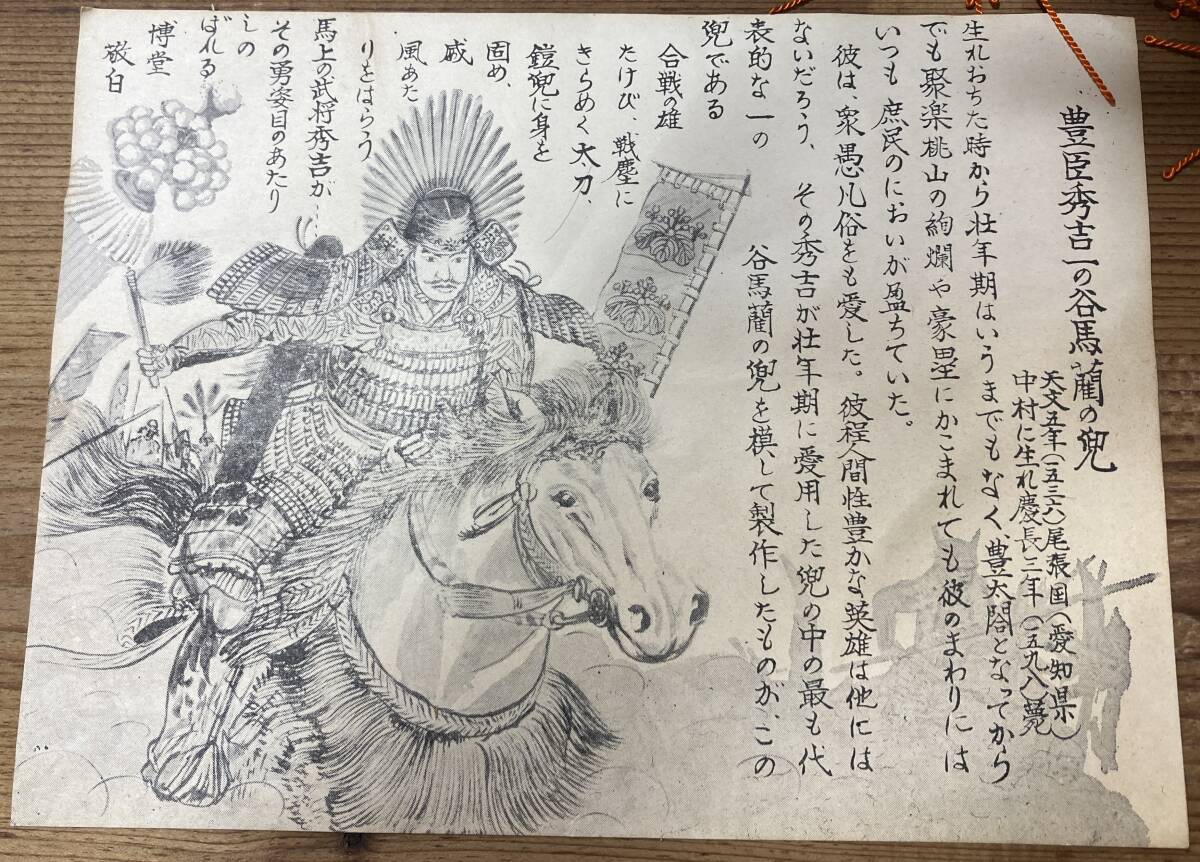 豊臣秀吉一の谷馬藺の兜
天文五年(一五三六)尾張国(愛知県)
中村に生れ慶長三年(一五九八)薨
生れおちた時から壮年期はいうまでもなく豊太閤となってから
でも聚楽桃山の絢爛や豪塁にかこまれても彼のまわりには
いつも庶民のにおいが盈ちていた。
彼は、衆愚凡俗をも愛した。彼程人間性豊かな英雄は他には
ないだろう、その秀吉が壮年期に愛用した兜の中の最も代
表的な一の谷馬藺の兜を模して製作したものが、この
兜である
合戦の雄
たけび、戦塵に
きらめく太刀、
鎧兜に身を
固め、
威
風あた
りをはらう
馬上の武将秀吉が…
その勇姿目のあたり
しの
ばれる
博堂
敬白